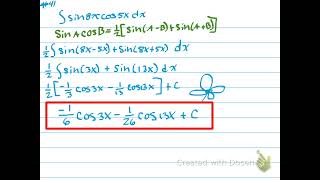 #41
∫ sin8x cos5x dx
sinA cosB = ½[sin(A-B) + sin(A+B)]
½ ∫ sin(8x-5x) + sin(8x+5x) dx
½ ∫ sin(3x) + sin(13x) dx
½ [-⅓ cos3x - 1/13 cos13x] + C
-1/6 cos3x - 1/26 cos13x + C
Created with Doceri